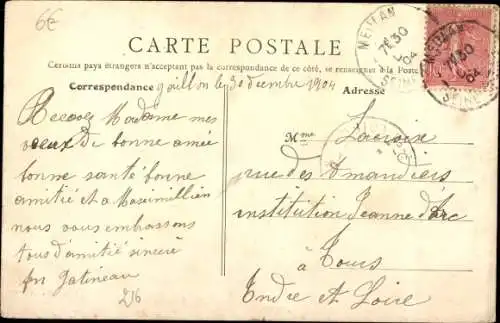 6€
MEULAN
7E 30
04
SEINE
MEULAN
7E 30
04
SEINE
CARTE POSTALE
Certains pays étrangers n'acceptant pas la correspondance de ce côté, se renseigner à la Poste
Correspondance
Gaillon le 30 décembre 1904
Recevez Madame mes
voeux de bonne année
bonne santé bonne
amitié et a Maximillien
nous vous embrassons
tous d'amitié sincère
Gatineau
216
Adresse
Mme Lacroix
rue des Amandiers
institution Jeanne d'Arc
à Tours
Indre et Loire